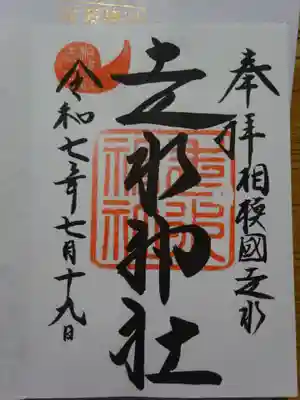 奉拝 相模國走水
走水神社
走水神社
令和七年七月十九日